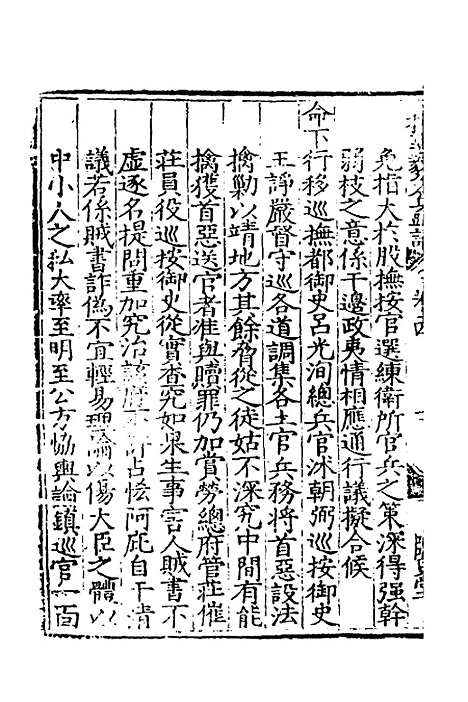 免指大於股撫按官選練衛所官兵之策深得強幹
弱枝之意係干邊政夷情相應通行議擬合候
命下行移巡撫都御史呂光洵總兵官沐朝弼巡按御史
王諍嚴督守巡各道調集各土官兵務將首惡設法
擒勦以靖地方其餘脅從之徒姑不深究中間有能
擒獲首惡送官者准與贖罪仍加賞勞總府管莊催
莊員役巡按御史從實查究如果生事害人賊書不
虛逐名提問重加究治該府不許占恡阿庇自干清
議若係賊書詐偽不宜輕易理論以傷大臣之體以
中小人之私大率至明至公方恊輿論鎮巡官一面